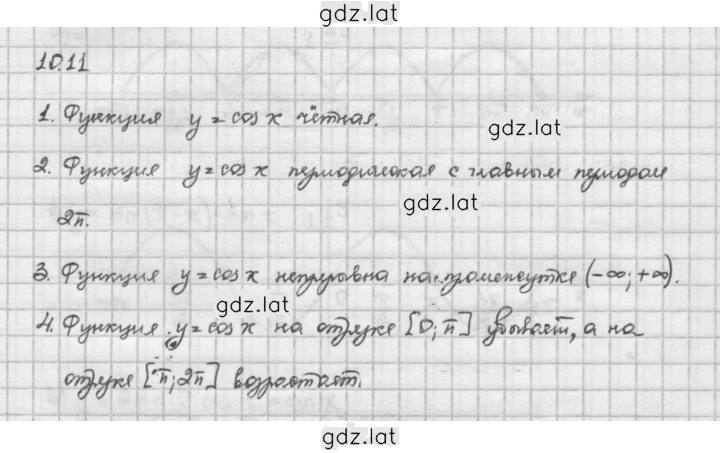 gdz.lat
10.11
1. Функция y = cos x чётная.
gdz.lat
2. Функция y = cos x периодическая с главным периодом
gdz.lat
2π.
3. Функция y = cos x непрерывна на промежутке (-∞; +∞).
gdz.lat
4. Функция y = cos x на отрезке [0; π] убывает, а на
отрезке [π; 2π] возрастает.
gdz.lat